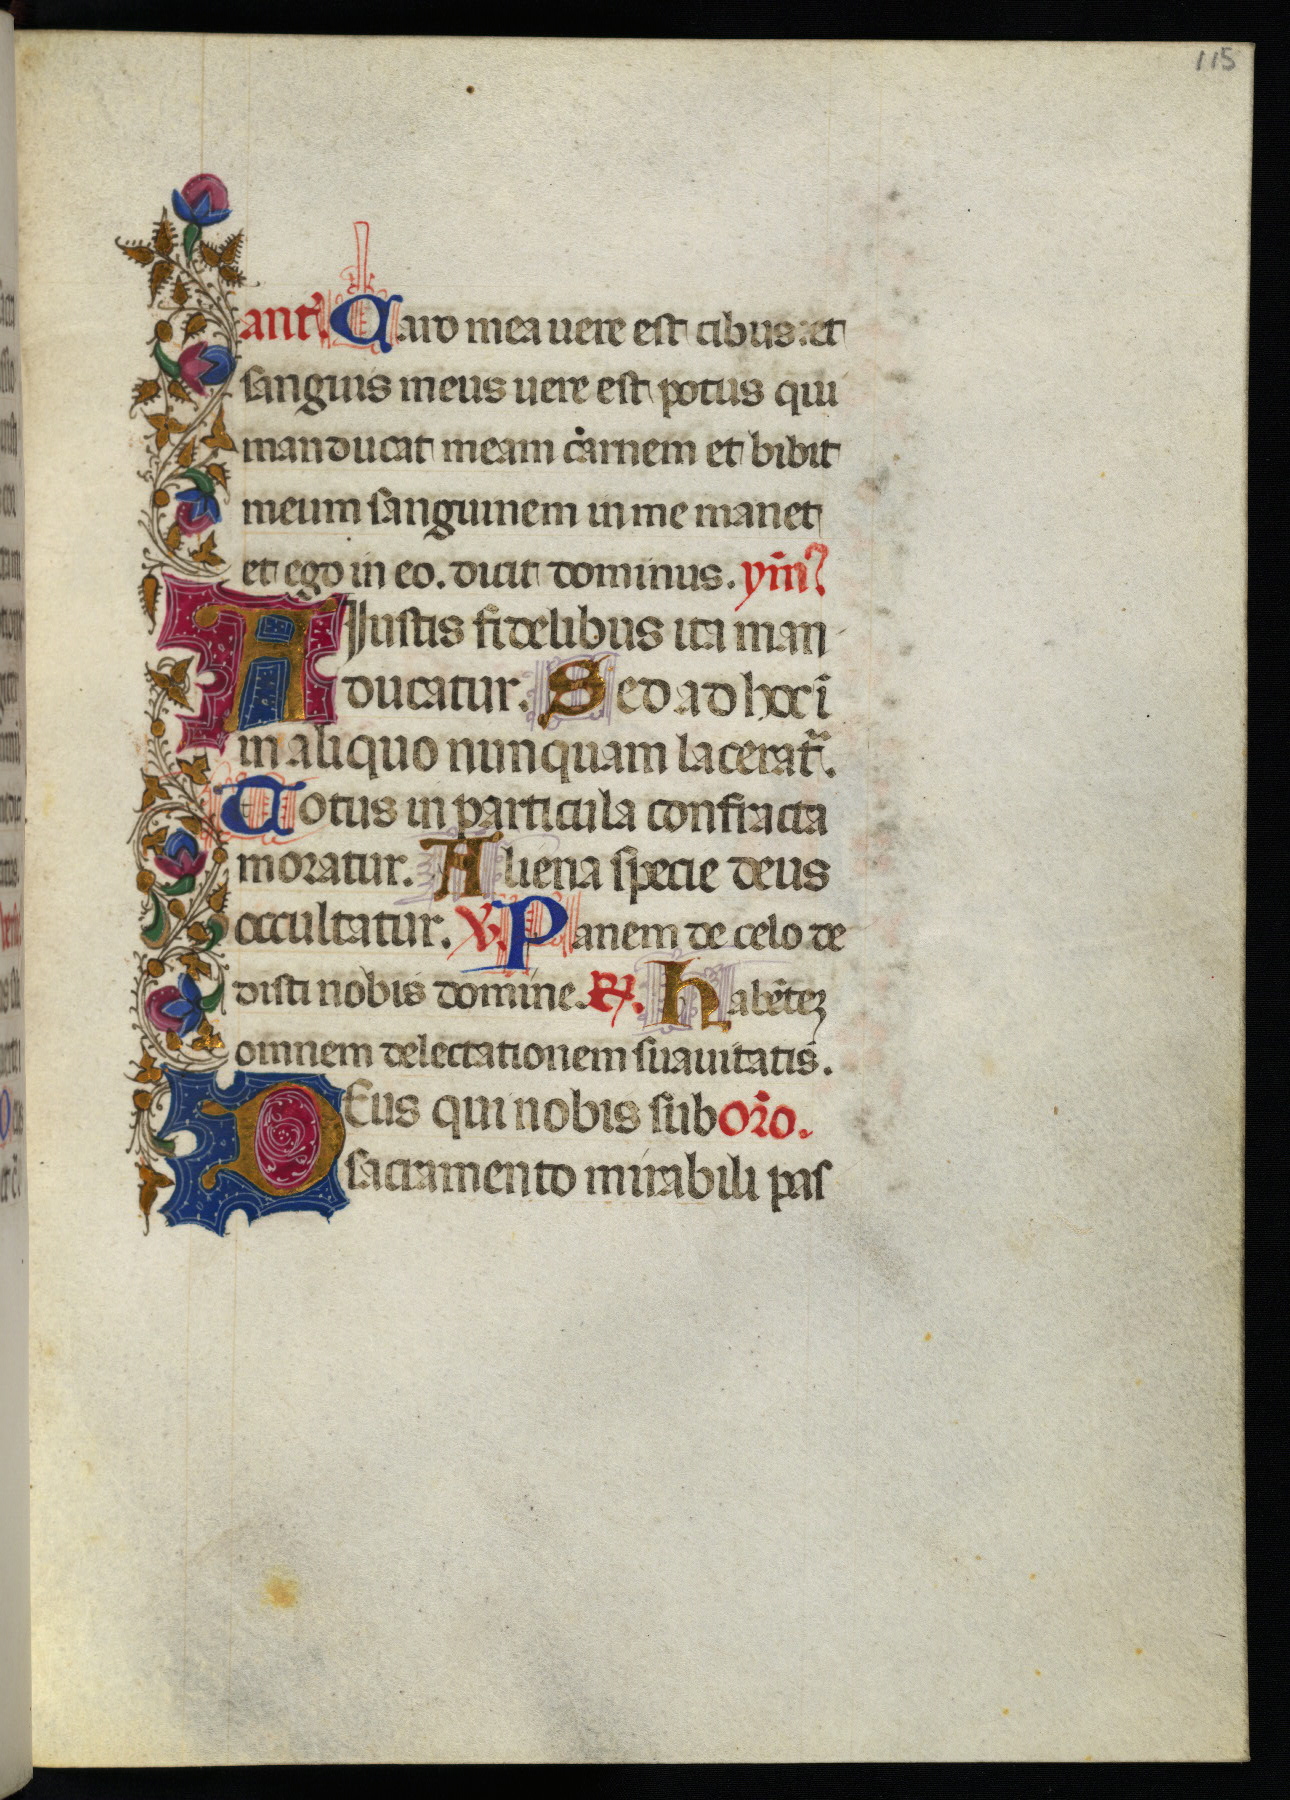 115
ant̄. Caro mea uere est cibus: et
sanguis meus uere est potus qui
manducat meam carnem et bibit
meum sanguinem in me manet
et ego in eo. dicit dominus. ym̄.
A Iustis fidelibus ita man
ducatur. Sed ad hoc ī
in aliquo nunquam lacerat̄.
Totus in particula confracta
moratur. Aliena specie deus
occultatur. V. Panem de celo de
disti nobis domine. R. habētez
omnem delectationem suauitatis.
DEus qui nobis sub or̄o.
sacramento mirabili pas